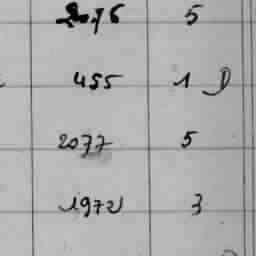 2076 5
455 1 D
2077 5
1972 3